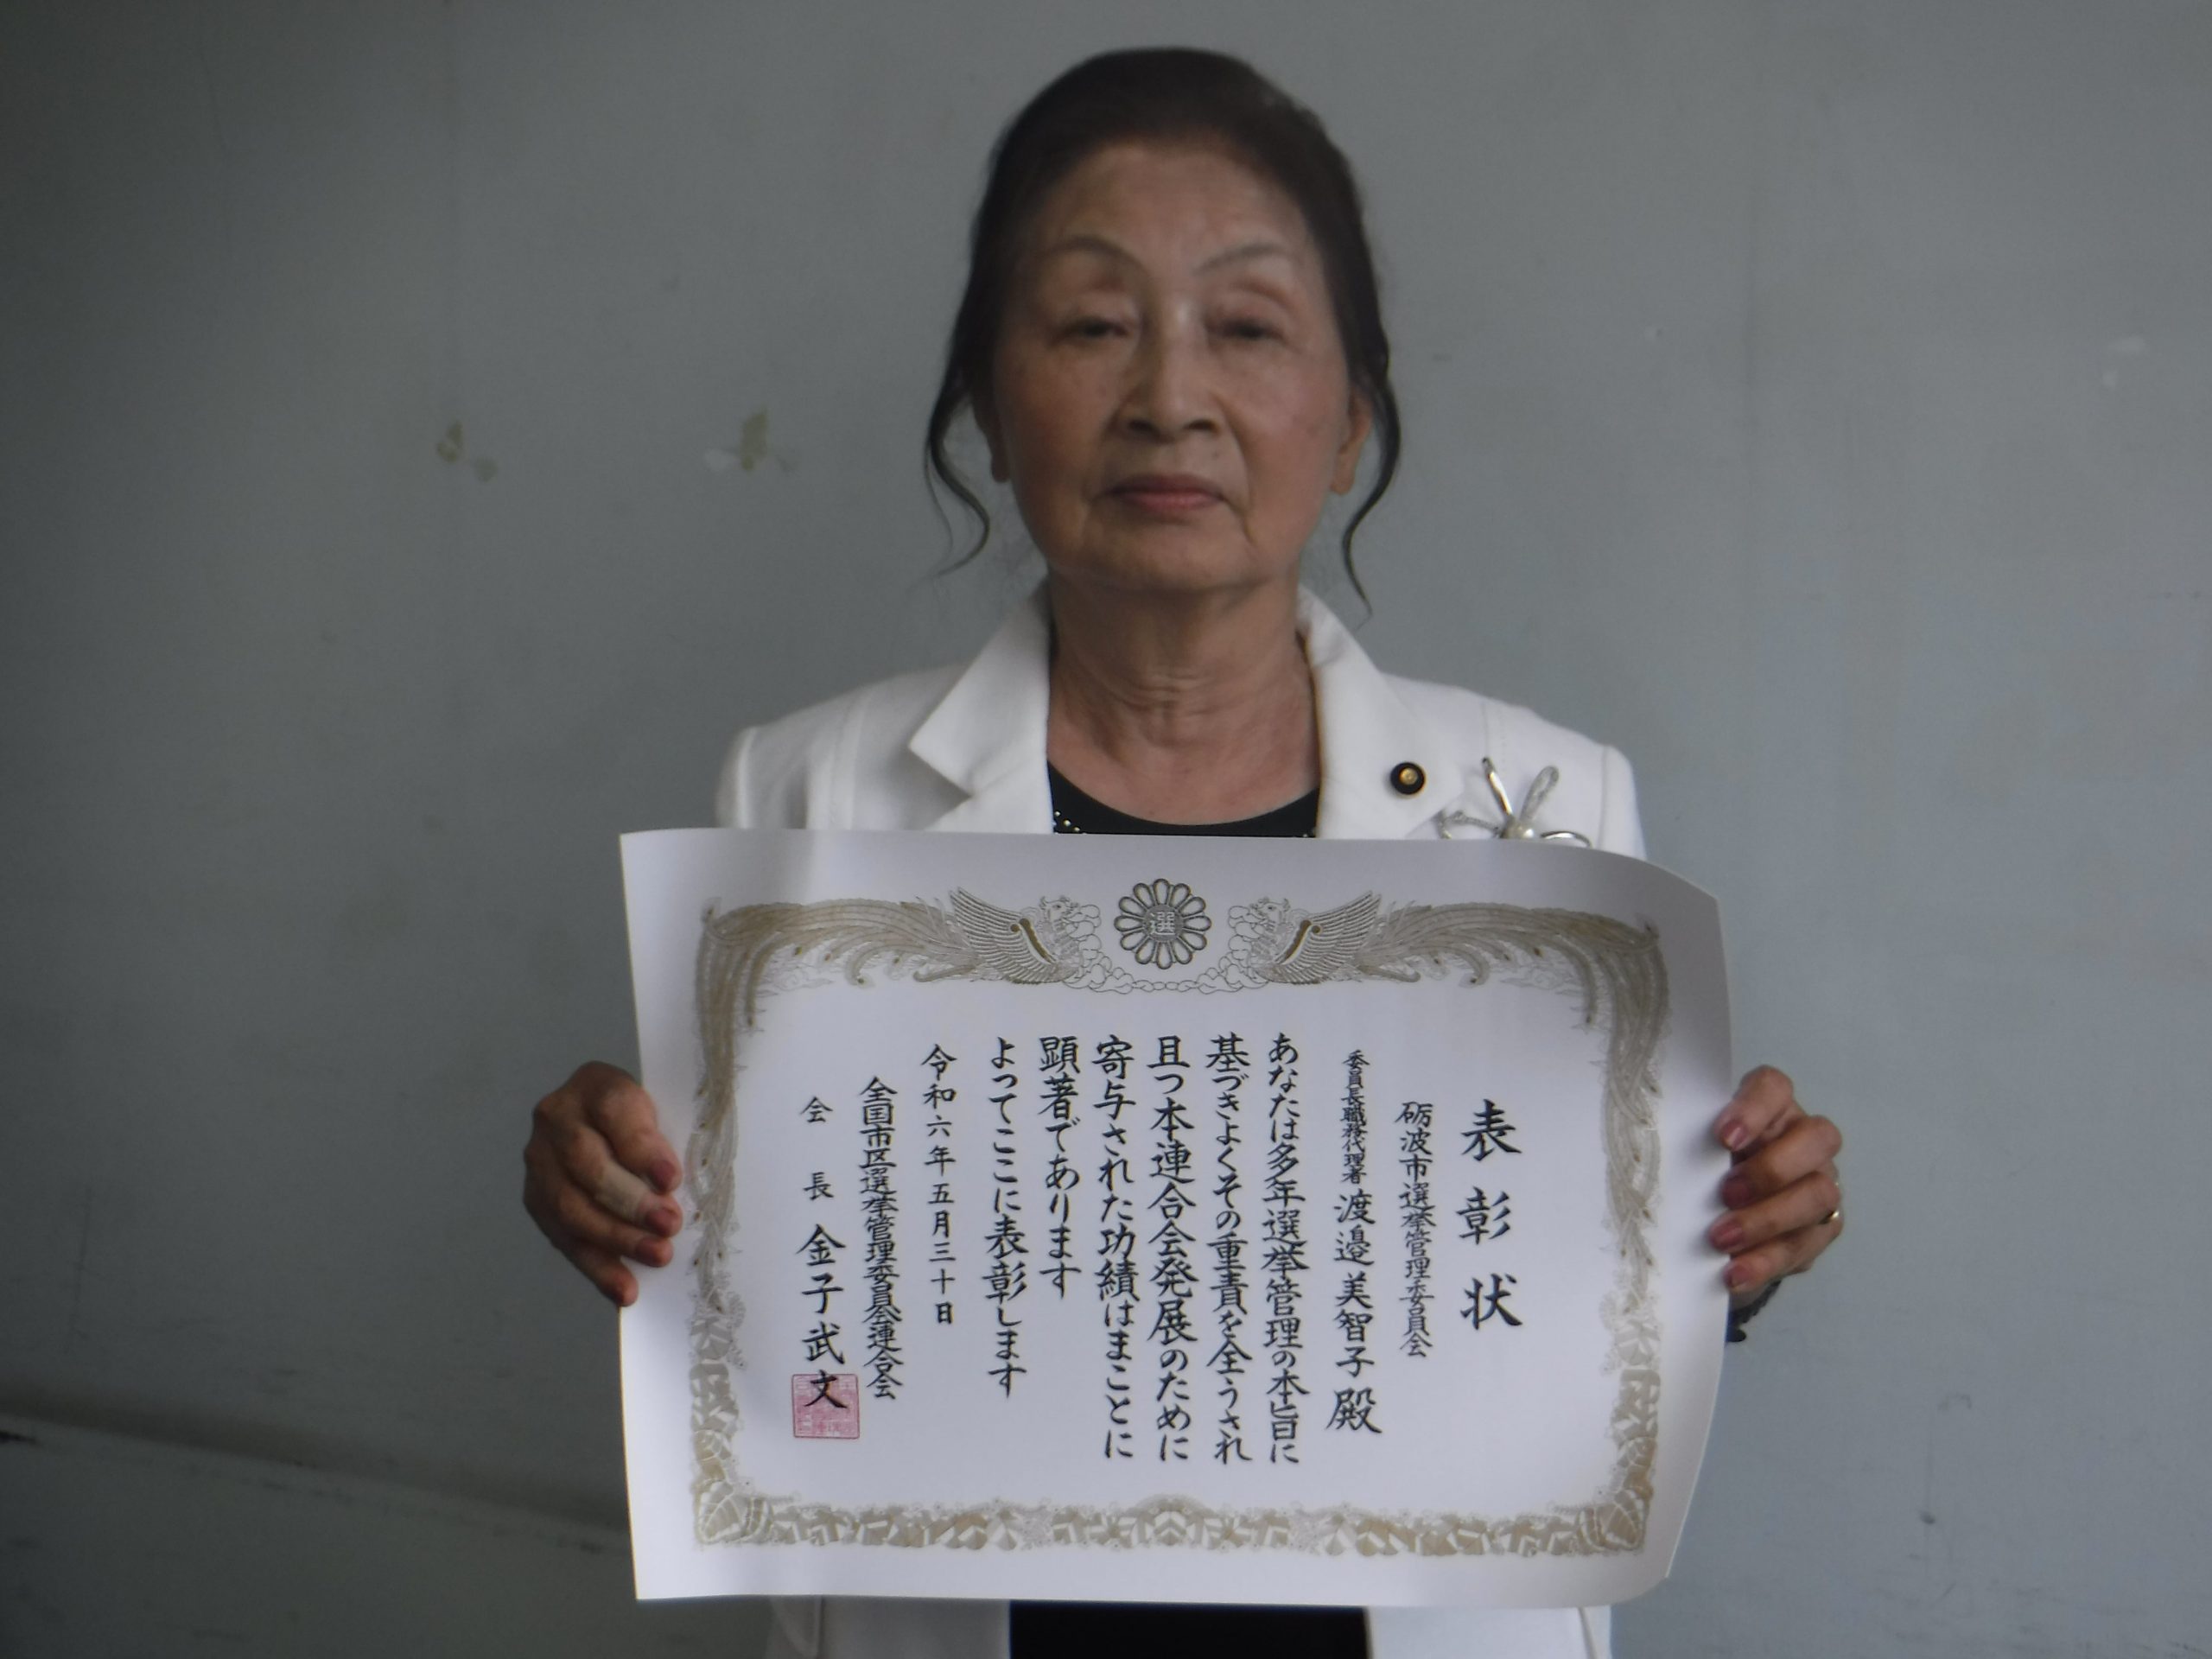 選
表彰状
砺波市選挙管理委員会
委員長職務代理者 渡邉美智子殿
あなたは多年選挙管理の本旨に
基づきよくその重責を全うされ
且つ本連合会発展のために
寄与された功績はまことに
顕著であります
よってここに表彰します
令和六年五月三十日
全国市区選挙管理委員会連合会
会長 金子武文